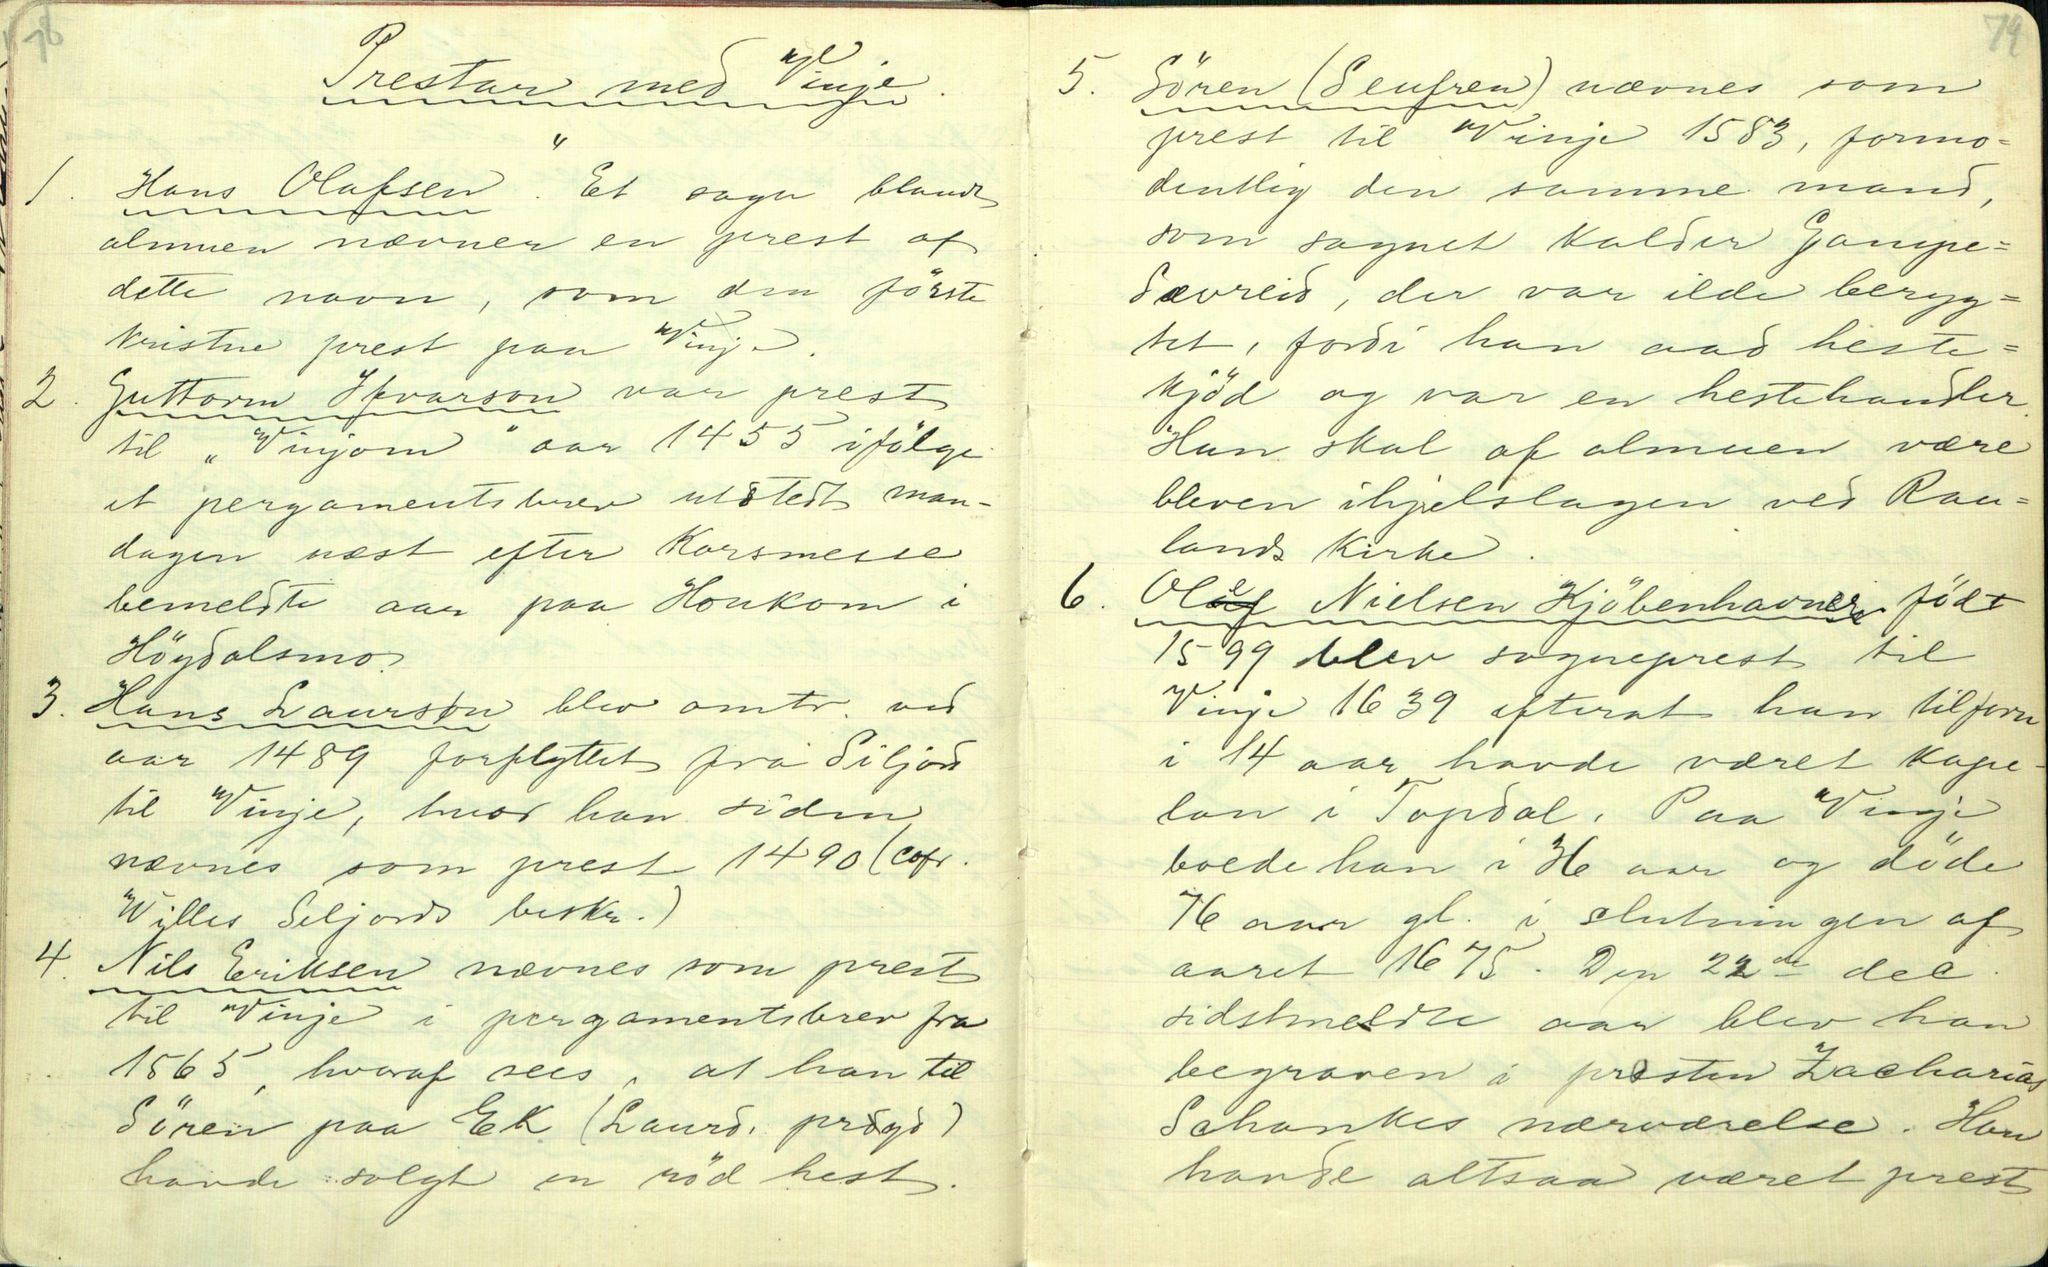 78
Prestar med Vinje.
"
1. Hans Olafsen. Et sagn blandt
almuen nævner en prest af
dette navn, som den förste
kristne prest paa Vinje.
2. Guttorm Ifvarson var prest
til „Vinjom" aar 1455 ifölge
et pergamentsbrev utstedt man-
dagen næst efter Korsmesse
bemeldte aar paa Houkom i
Höydalsmo.
3. Hans Laurson blev omtr. ved
aar 1489 forflyttet fra Siljord
til Vinje, hvor han siden
nævnes som prest 1490 (cofr.
Willes Seljords beskr.)
4. Nils Eriksen nævnes som prest
til Vinje i pergamentsbrev fra
1565, hvoraf sees, at han til
Sören paa Ek (Laurd. prgd)
havde solgt en röd hest.
79
5. Sören (Seufren) nævnes som
prest til Vinje 1583, formo=
dentlig den samme mand,
som sagnet kalder Gampe=
Sævreid, der var ilde beryg=
tet, fordi han aad heste=
kjöd og var en hestehandler.
Han skal af almuen være
bleven ihjelslagen ved Rau=
lands Kirke.
6. Ole Nielsen Kjöbenhavner födt
1599 blev sogneprest til
Vinje 1639 efterat han tilforn
i 14 aar havde været kape-
lan i Topdal. Paa Vinje
boede han i 36 aar og döde
76 aar gl. i slutningen af
aaret 1675. Den 22de dec.
sidstmeldte aar blev han
begraven i presten Zacharias
Schankes nærværelse. Han
havde altsaa været prest